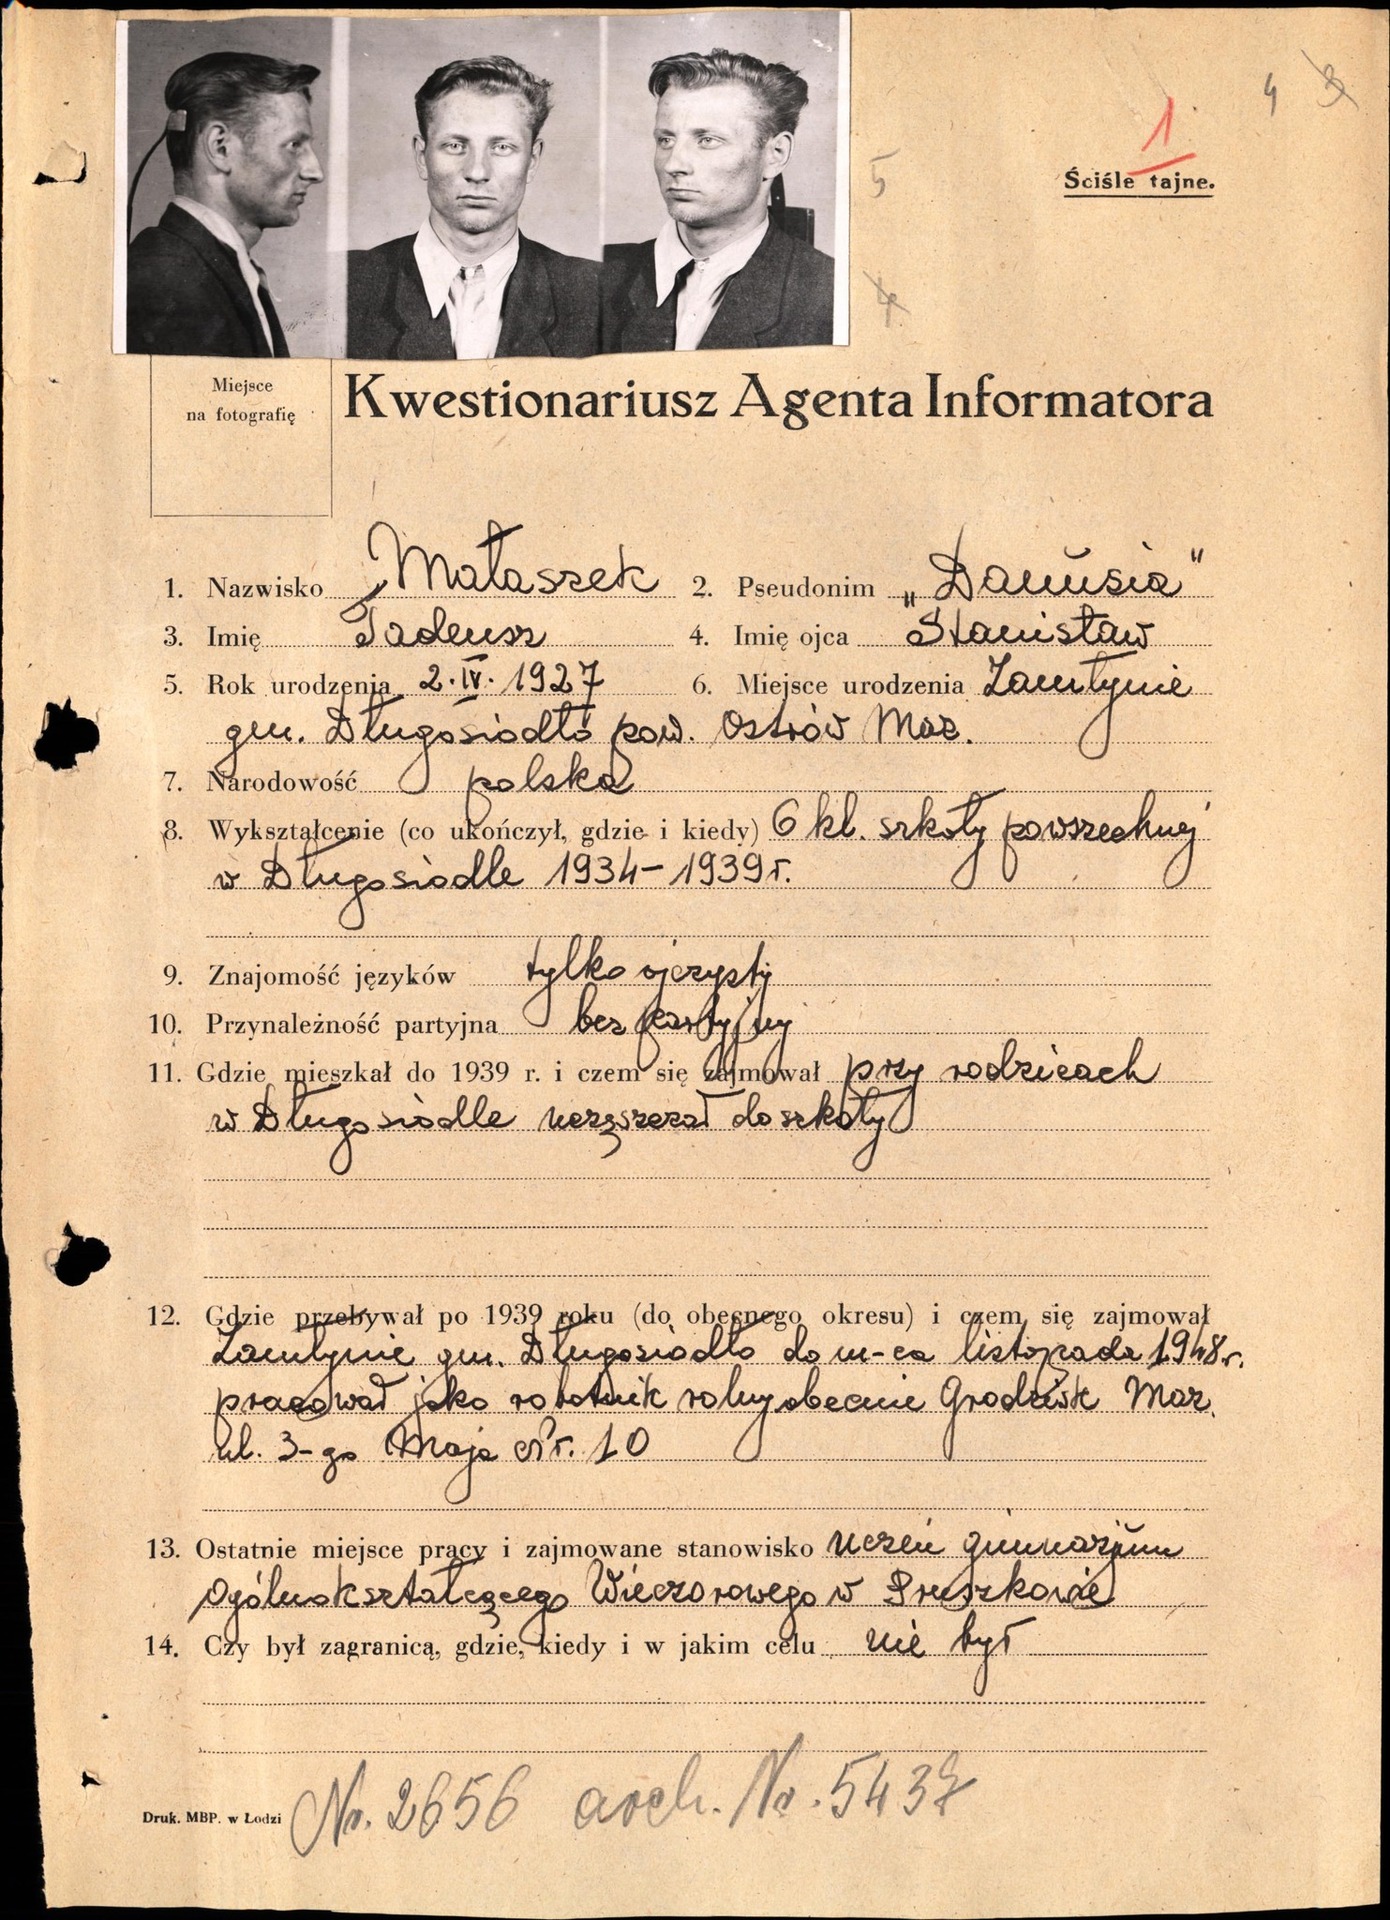 4 3
1
5
Ściśle tajne.
4
Miejsce
na fotografię
Kwestionariusz Agenta Informatora
1. Nazwisko Małaszek 2. Pseudonim „Danusia"
3. Imię Tadeusz 4. Imię ojca Stanisław
5. Rok urodzenia 2.IV.1927 6. Miejsce urodzenia Zamłynie
gm. Długosiodło pow. Ostrów Maz.
7. Narodowość polska
8. Wykształcenie (co ukończył, gdzie i kiedy) 6 kl. szkoły powszechnej
w Długosiodle 1934-1939r.
9. Znajomość języków tylko ojczysty
10. Przynależność partyjna bez partyjny
11. Gdzie mieszkał do 1939 r. i czem się zajmował przy rodzicach
w Długosiodle uczęszczał do szkoły
12. Gdzie przebywał po 1939 roku (do obecnego okresu) i czem się zajmował
Zamłynie gm. Długosiodło do m-ca listopada 1948r.
pracował jako robotnik rolny obecnie Grodzisk Maz.
ul. 3-go Maja Nr. 10
13. Ostatnie miejsce pracy i zajmowane stanowisko uczeń gimnazjum
Ogólnokształcącego Wieczorowego w Pruszkowie
14. Czy był zagranicą, gdzie, kiedy i w jakim celu nie był
Druk. MBP. w Łodzi Nr. 2656 arch. Nr. 5437